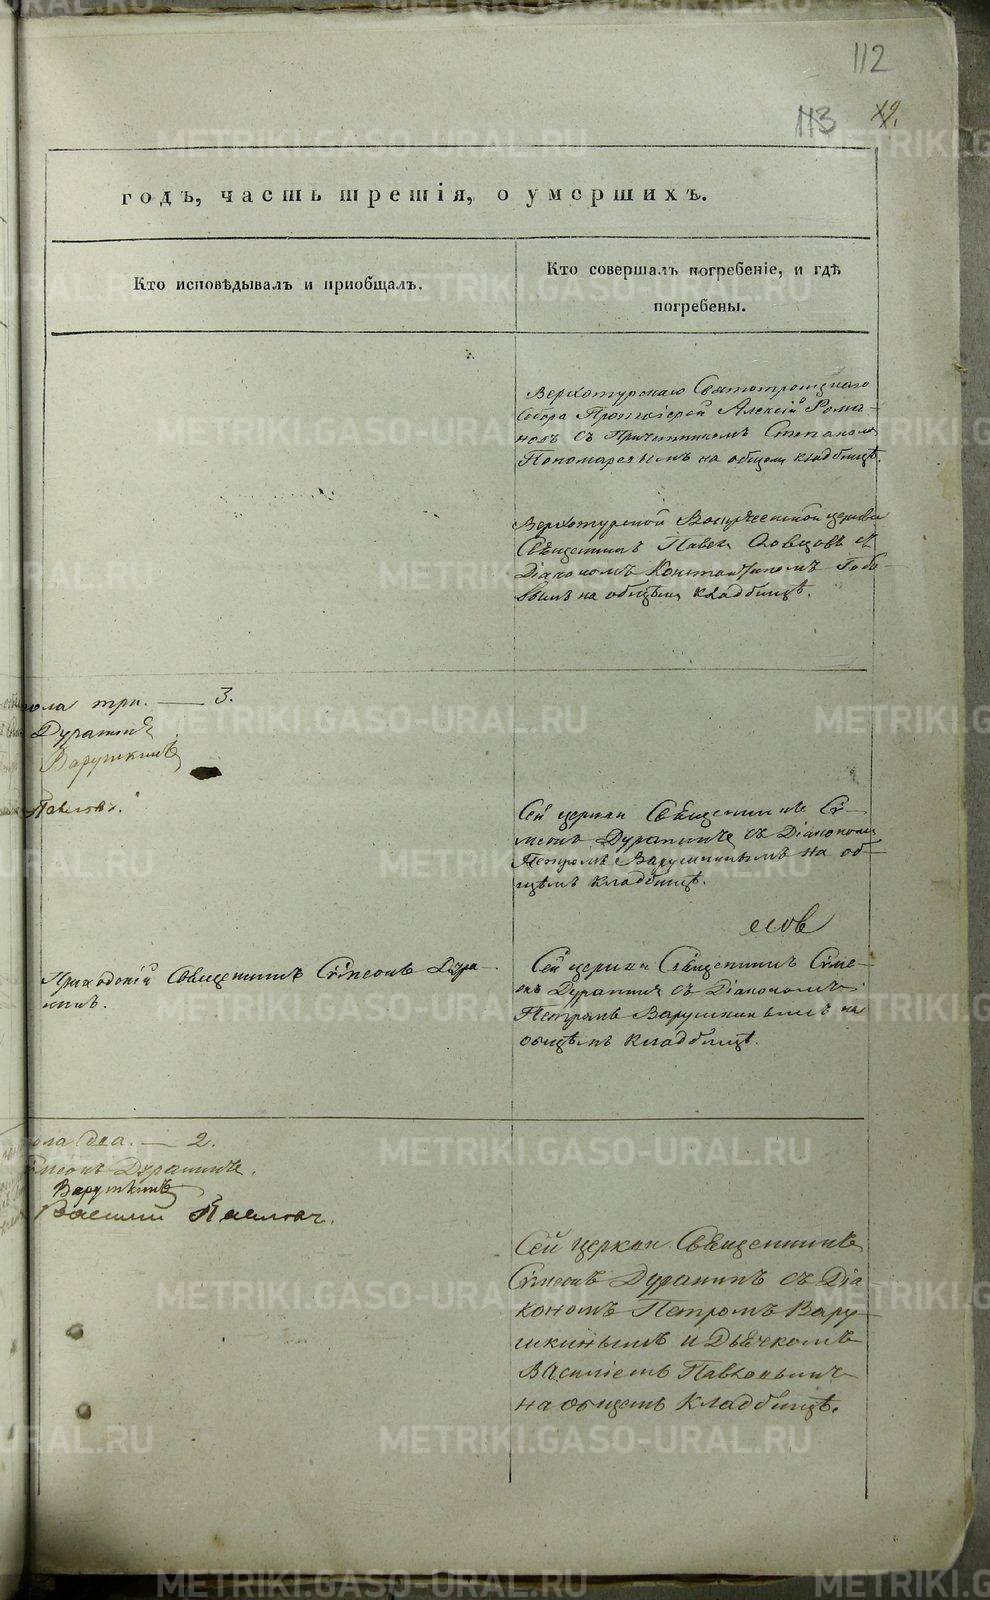 112
113
годъ, часть третія, о умершихъ.
Кто исповѣдывалъ и пріобщалъ.
Кто совершалъ погребеніе, и гдѣ
погребены.
Верхотурскаго Святотроицкаго
Собора Протоіерей Алексій Рома-
новъ съ Причетникомъ Степаномъ
Пономаревымъ на общемъ кладбищѣ.
Верхотурской Воскресенской церкви
Священникъ Павелъ Словцовъ съ
Діакономъ Константиномъ
на общемъ кладбищѣ.
пола три. — 3.
Дурагинъ
Варушкинъ
Павловъ.
Сей церкви Священникъ Сѵ-
меонъ Дурагинъ съ Діакономъ
Петромъ Варушкинымъ на об-
щемъ кладбищѣ.
Приходскій Священникъ Сѵмеонъ Дура-
гинъ.
Сей церкви Священникъ Сѵме-
онъ Дурагинъ съ Діакономъ
Петромъ Варушкинымъ на
общемъ кладбищѣ.
пола два. — 2.
Сѵмеонъ Дурагинъ.
Варушкинъ
Василій Павловъ.
Сей церкви Священникъ
Сѵмеонъ Дурагинъ съ Діа-
кономъ Петромъ Вару-
шкинымъ и Дьячкомъ
Василіемъ Павловымъ
на общемъ кладбищѣ.
METRIKI.GASO-URAL.RU